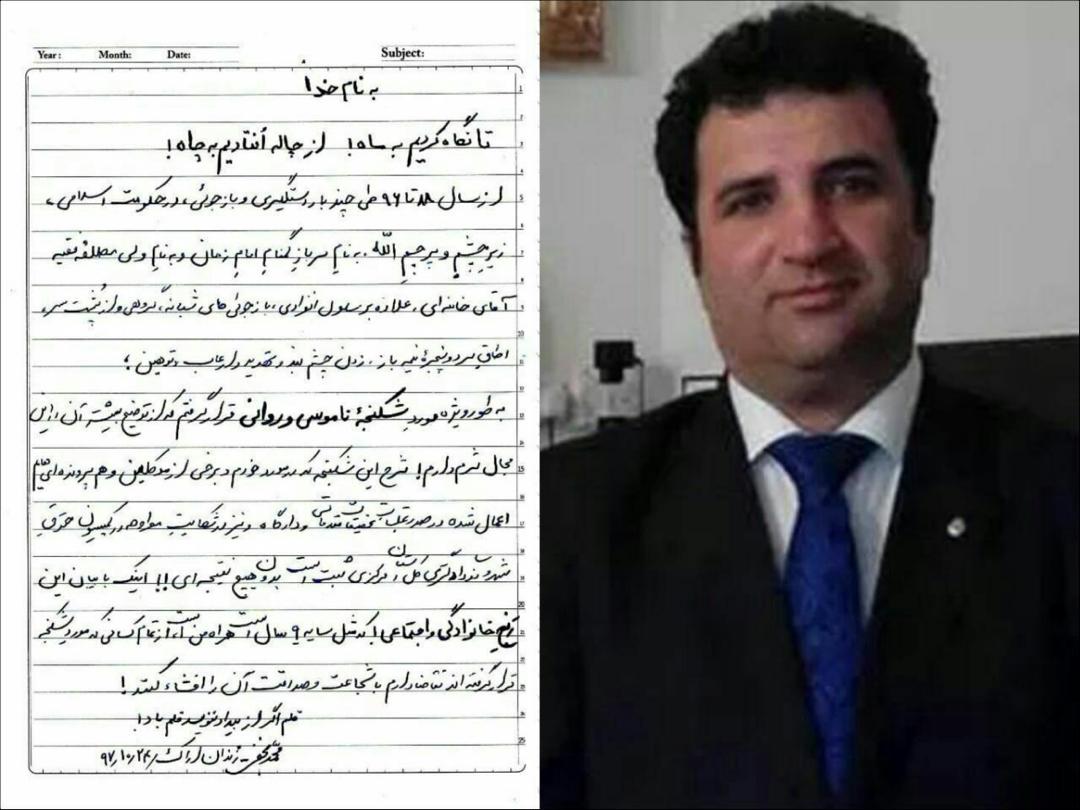 Year: Month: Date: Subject:
به نام خدا
تا نگاه کردیم به ساه! از چاله اُفتادیم به چاه!
از سال ۸۸ تا ۹۶ طی چند بار دستگیری و بازجوئی، در حکومت اسلامی،
زیر چشم و پرچم اللّه، به نام سرباز گمنام امام زمان و به نام ولی مطلقه فقیه
آقای خامنه ای، علاوه بر سلول انفرادی، بازجوئی های شبانه، گروهی و از پُشت سر،
اطاق سرد و پنجرۀ نیمه باز، زدن چشم بند و تهدید و ارعاب و توهین؛
به طور ویژه مورد شکنجۀ ناموسی و روانی قرار گرفتم که از توضیح بیشتر آن در این
مجال شرم دارم! شرح این شکنجه که در مورد خودم و برخی از موکلین و هم پرونده ای هایم
اعمال شده در صفحات تحقیقات مقدماتی دادگاه و نیز در شکایت مواجهه در کمیسیون حقوق
شهروندی دادگستری کل استان مرکزی ثبت است بدون هیچ نتیجه ای!! اینک با بیان این
رنج خانوادگی و اجتماعی! که مثل سایه ۹ سال است همراه من است، از تمام کسانی که مورد شکنجه
قرار گرفته اند تقاضا دارم با شجاعت و صداقت آن را افشاء کنند!
قلم اگر از بیداد ننویسد قلم باد!
محمد نجفی - زندان اراک ۹۷/۱۰/۲۴